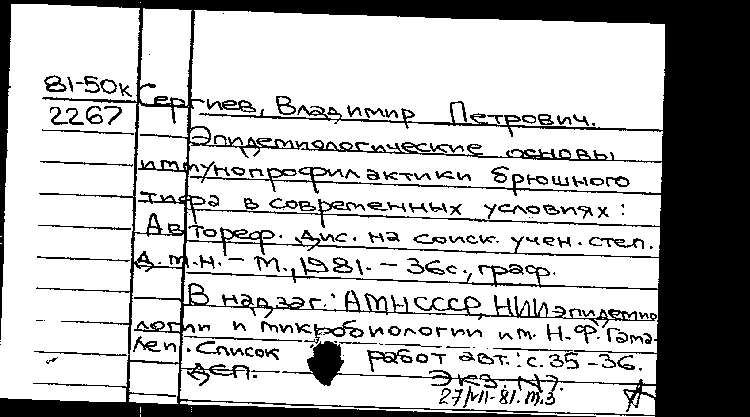 81-50к Сергиев, Владимир Петрович.
2267
Эпидемиологические основы
иммунопрофилактики брюшного
тифа в современных условиях:
Автореф. дис. на соиск. учен. степ.
д.м.н. – М., 1981. – 36с., граф.
В надзаг.: АМН СССР, НИИ эпидемио
логии и микробиологии им. Н.Ф. Гама-
леи. Список работ авт.: с. 35-36.
ДЕП. Экз. N7.
27/VII-81. м.з